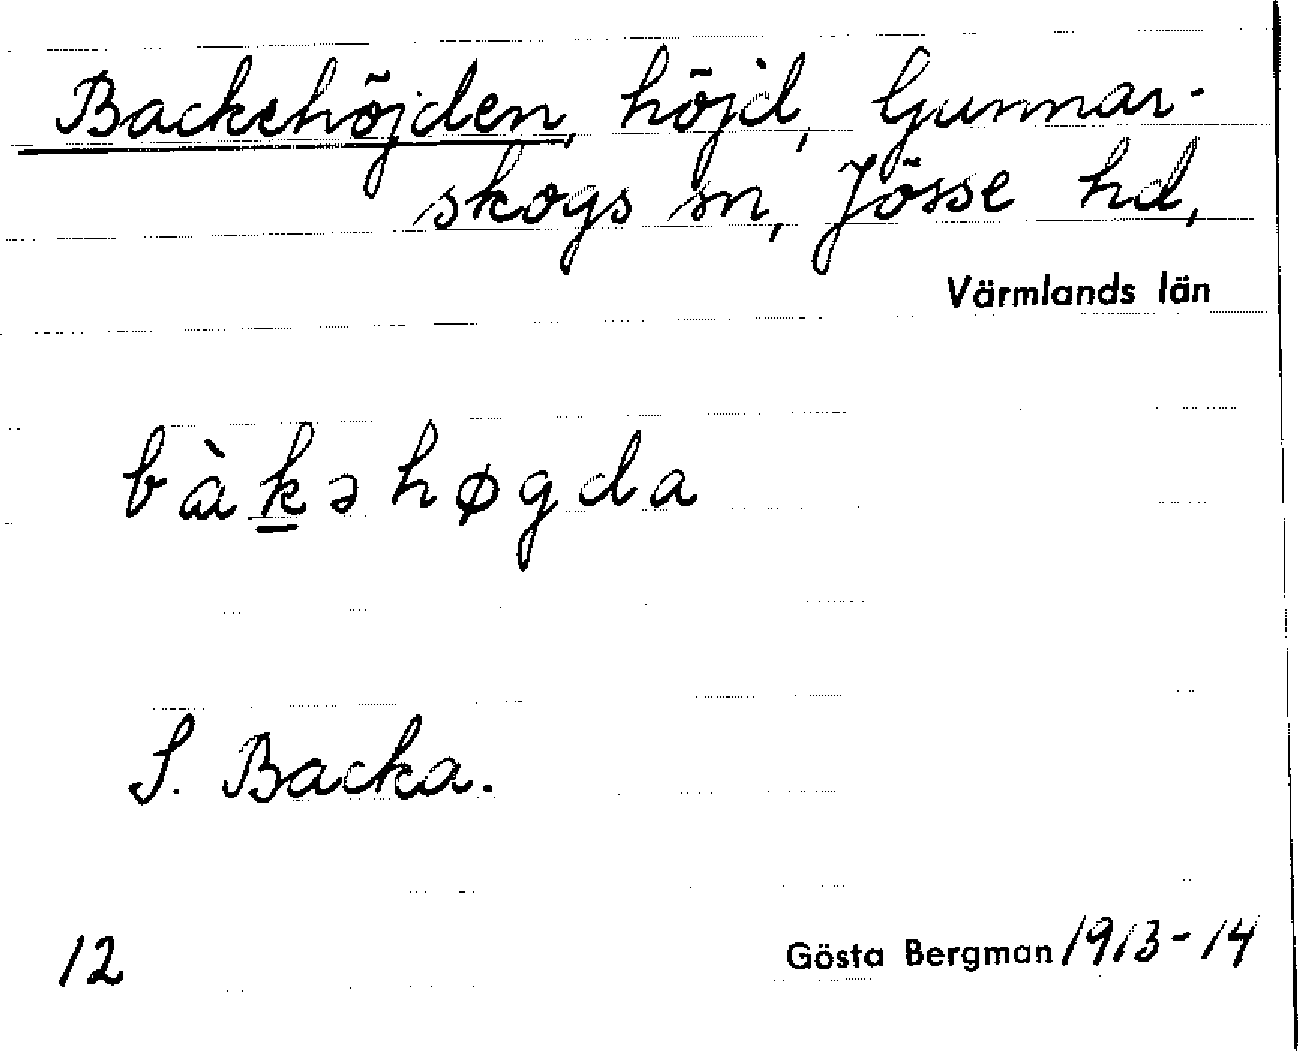 Backehöjden, höjd, Gunnar-
skogs sn, Jösse hd,
Värmlands län
bàk̲əhøgda
S. Backa.
12
Gösta Bergman 1913-14